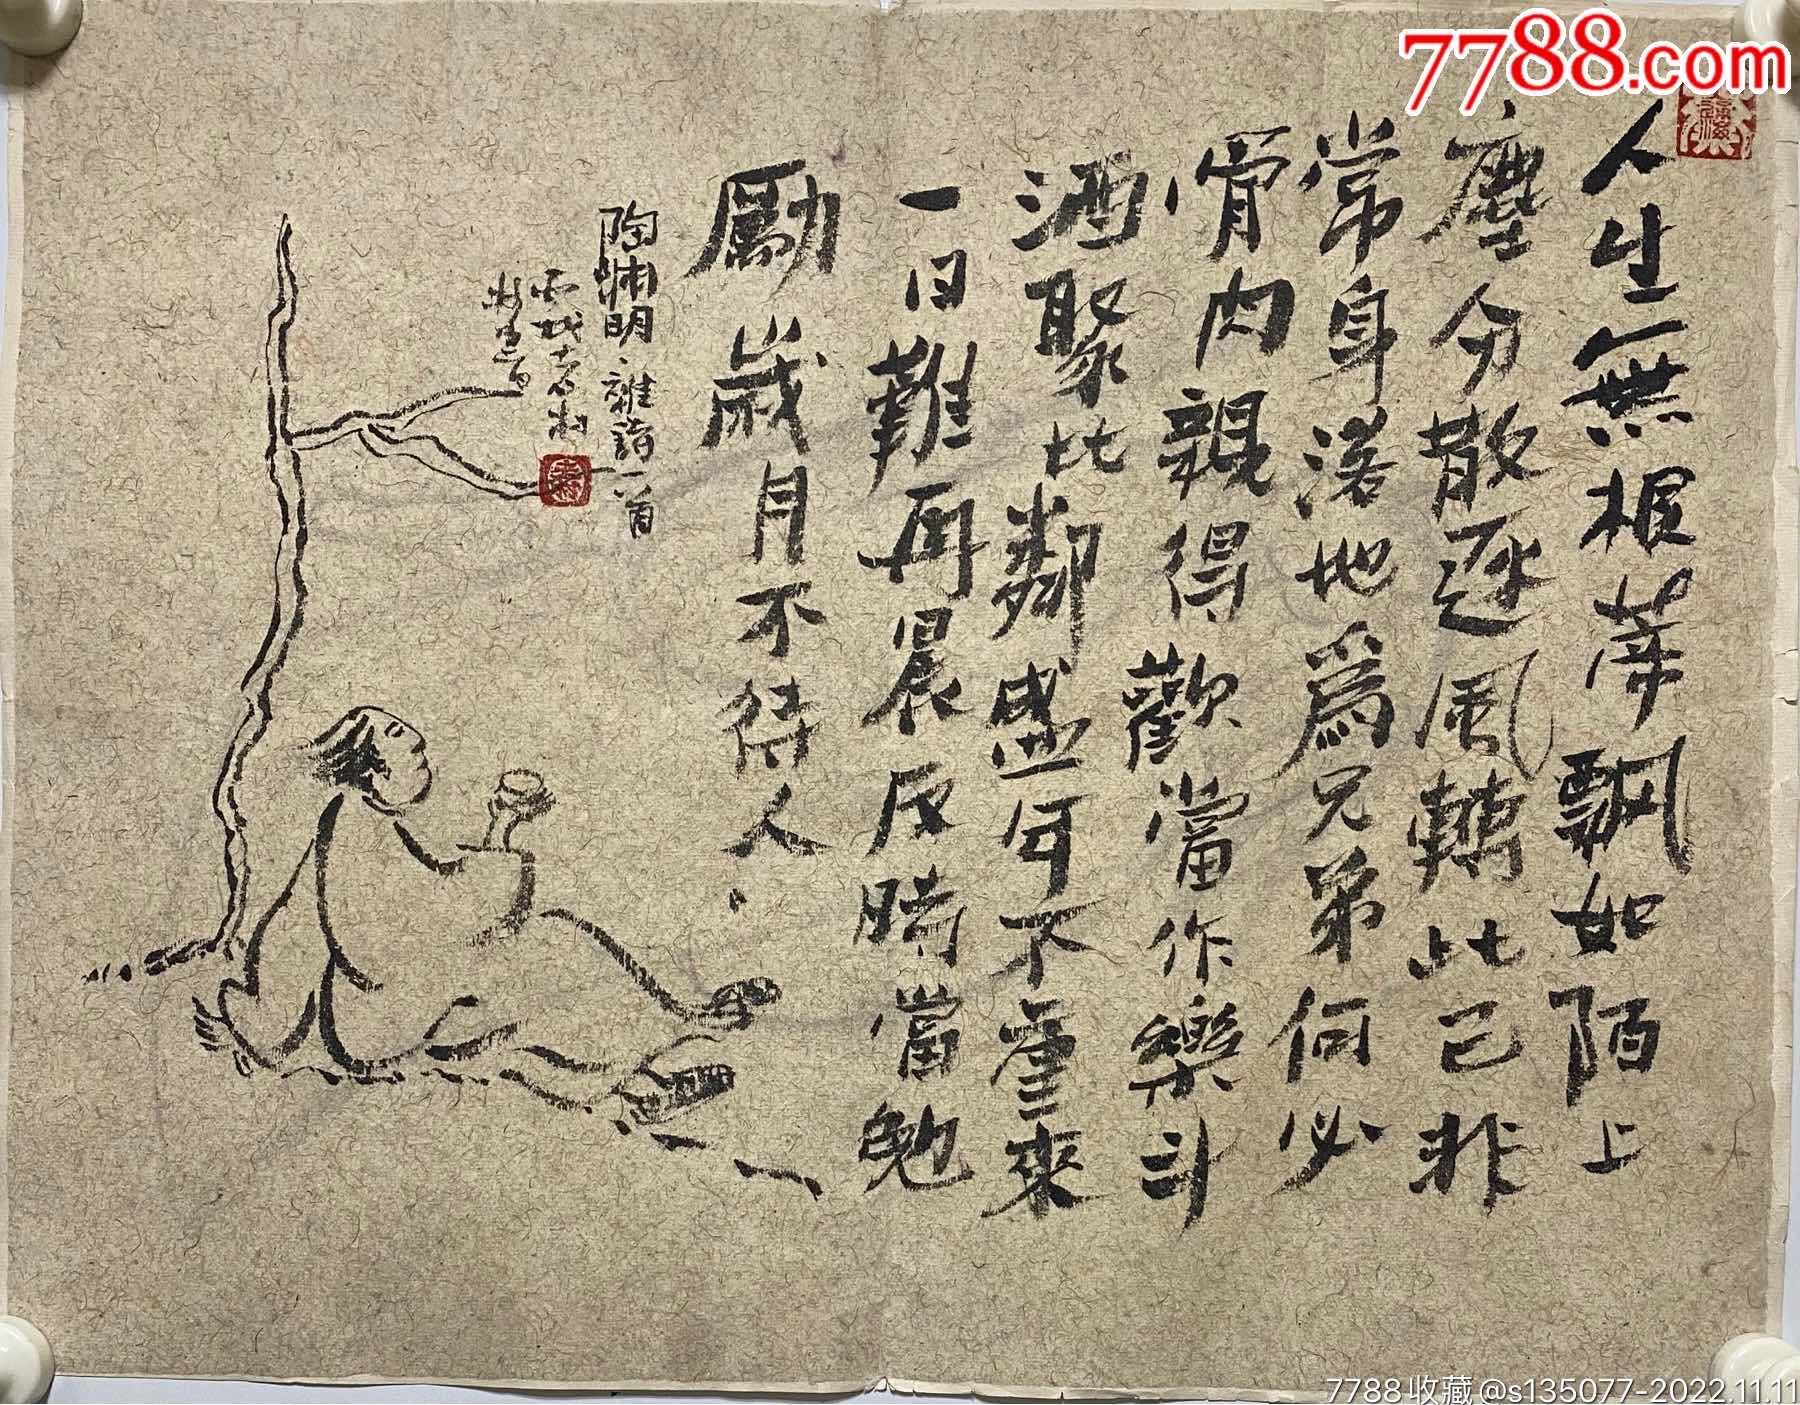 7788.com
人生無根蒂飄如陌上
塵分散逐風轉此已非
常身落地爲兄弟何必
骨肉親得歡當作樂斗
酒聚比鄰盛年不重來
一日難再晨及時當勉
勵歲月不待人
陶淵明雜詩一首
7788收藏@s135077-2022.11.11